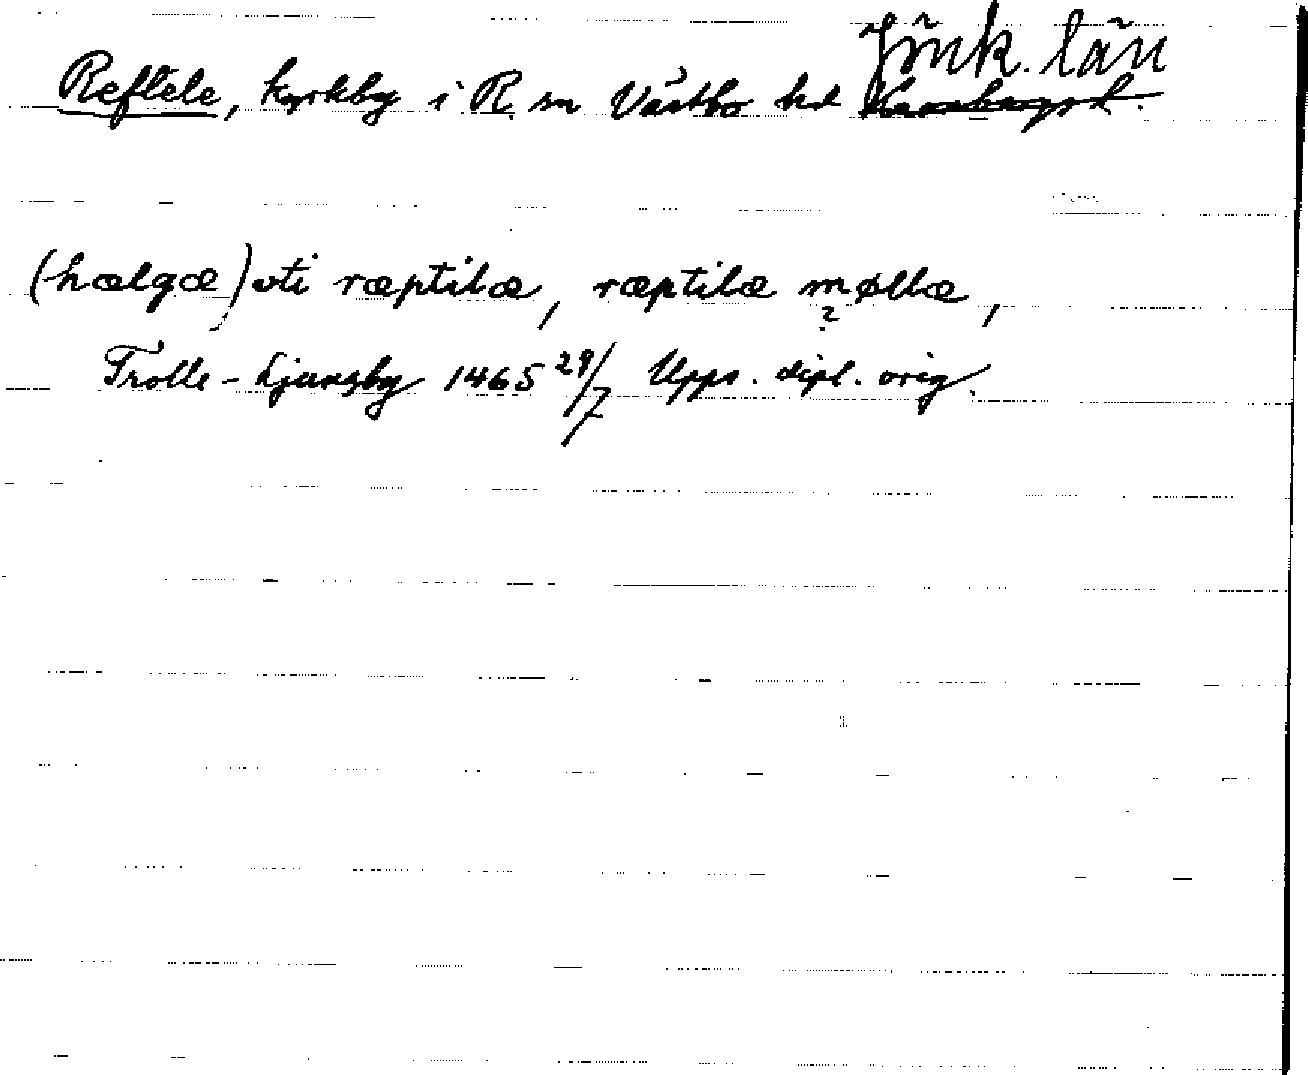 Jönk. län
Reftele, kyrkby i R. sn Västbo hd
(hælgæ) vti ræptilæ, ræptilæ møllæ,
?
Trolle-Ljungby 1465 29/7 Upps. dipl. orig.